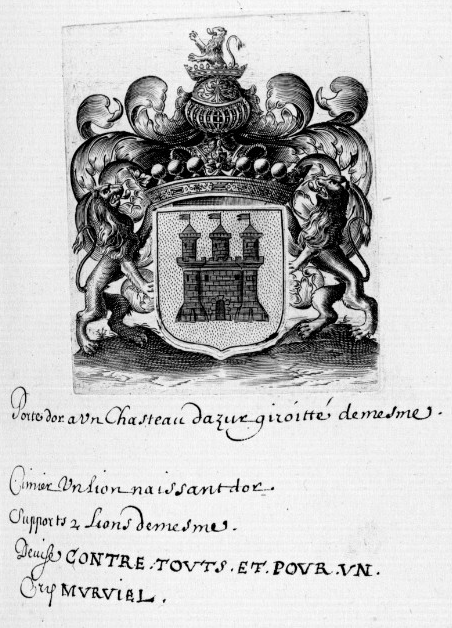 Porte dor a vn Chasteau dazur giroitté demesme.
Cimier Vn lion naissant dor.
Supports 2 Lions demesme.
Devise CONTRE.TOVTS.ET.POVR.VN.
Cry MVRVIEL.